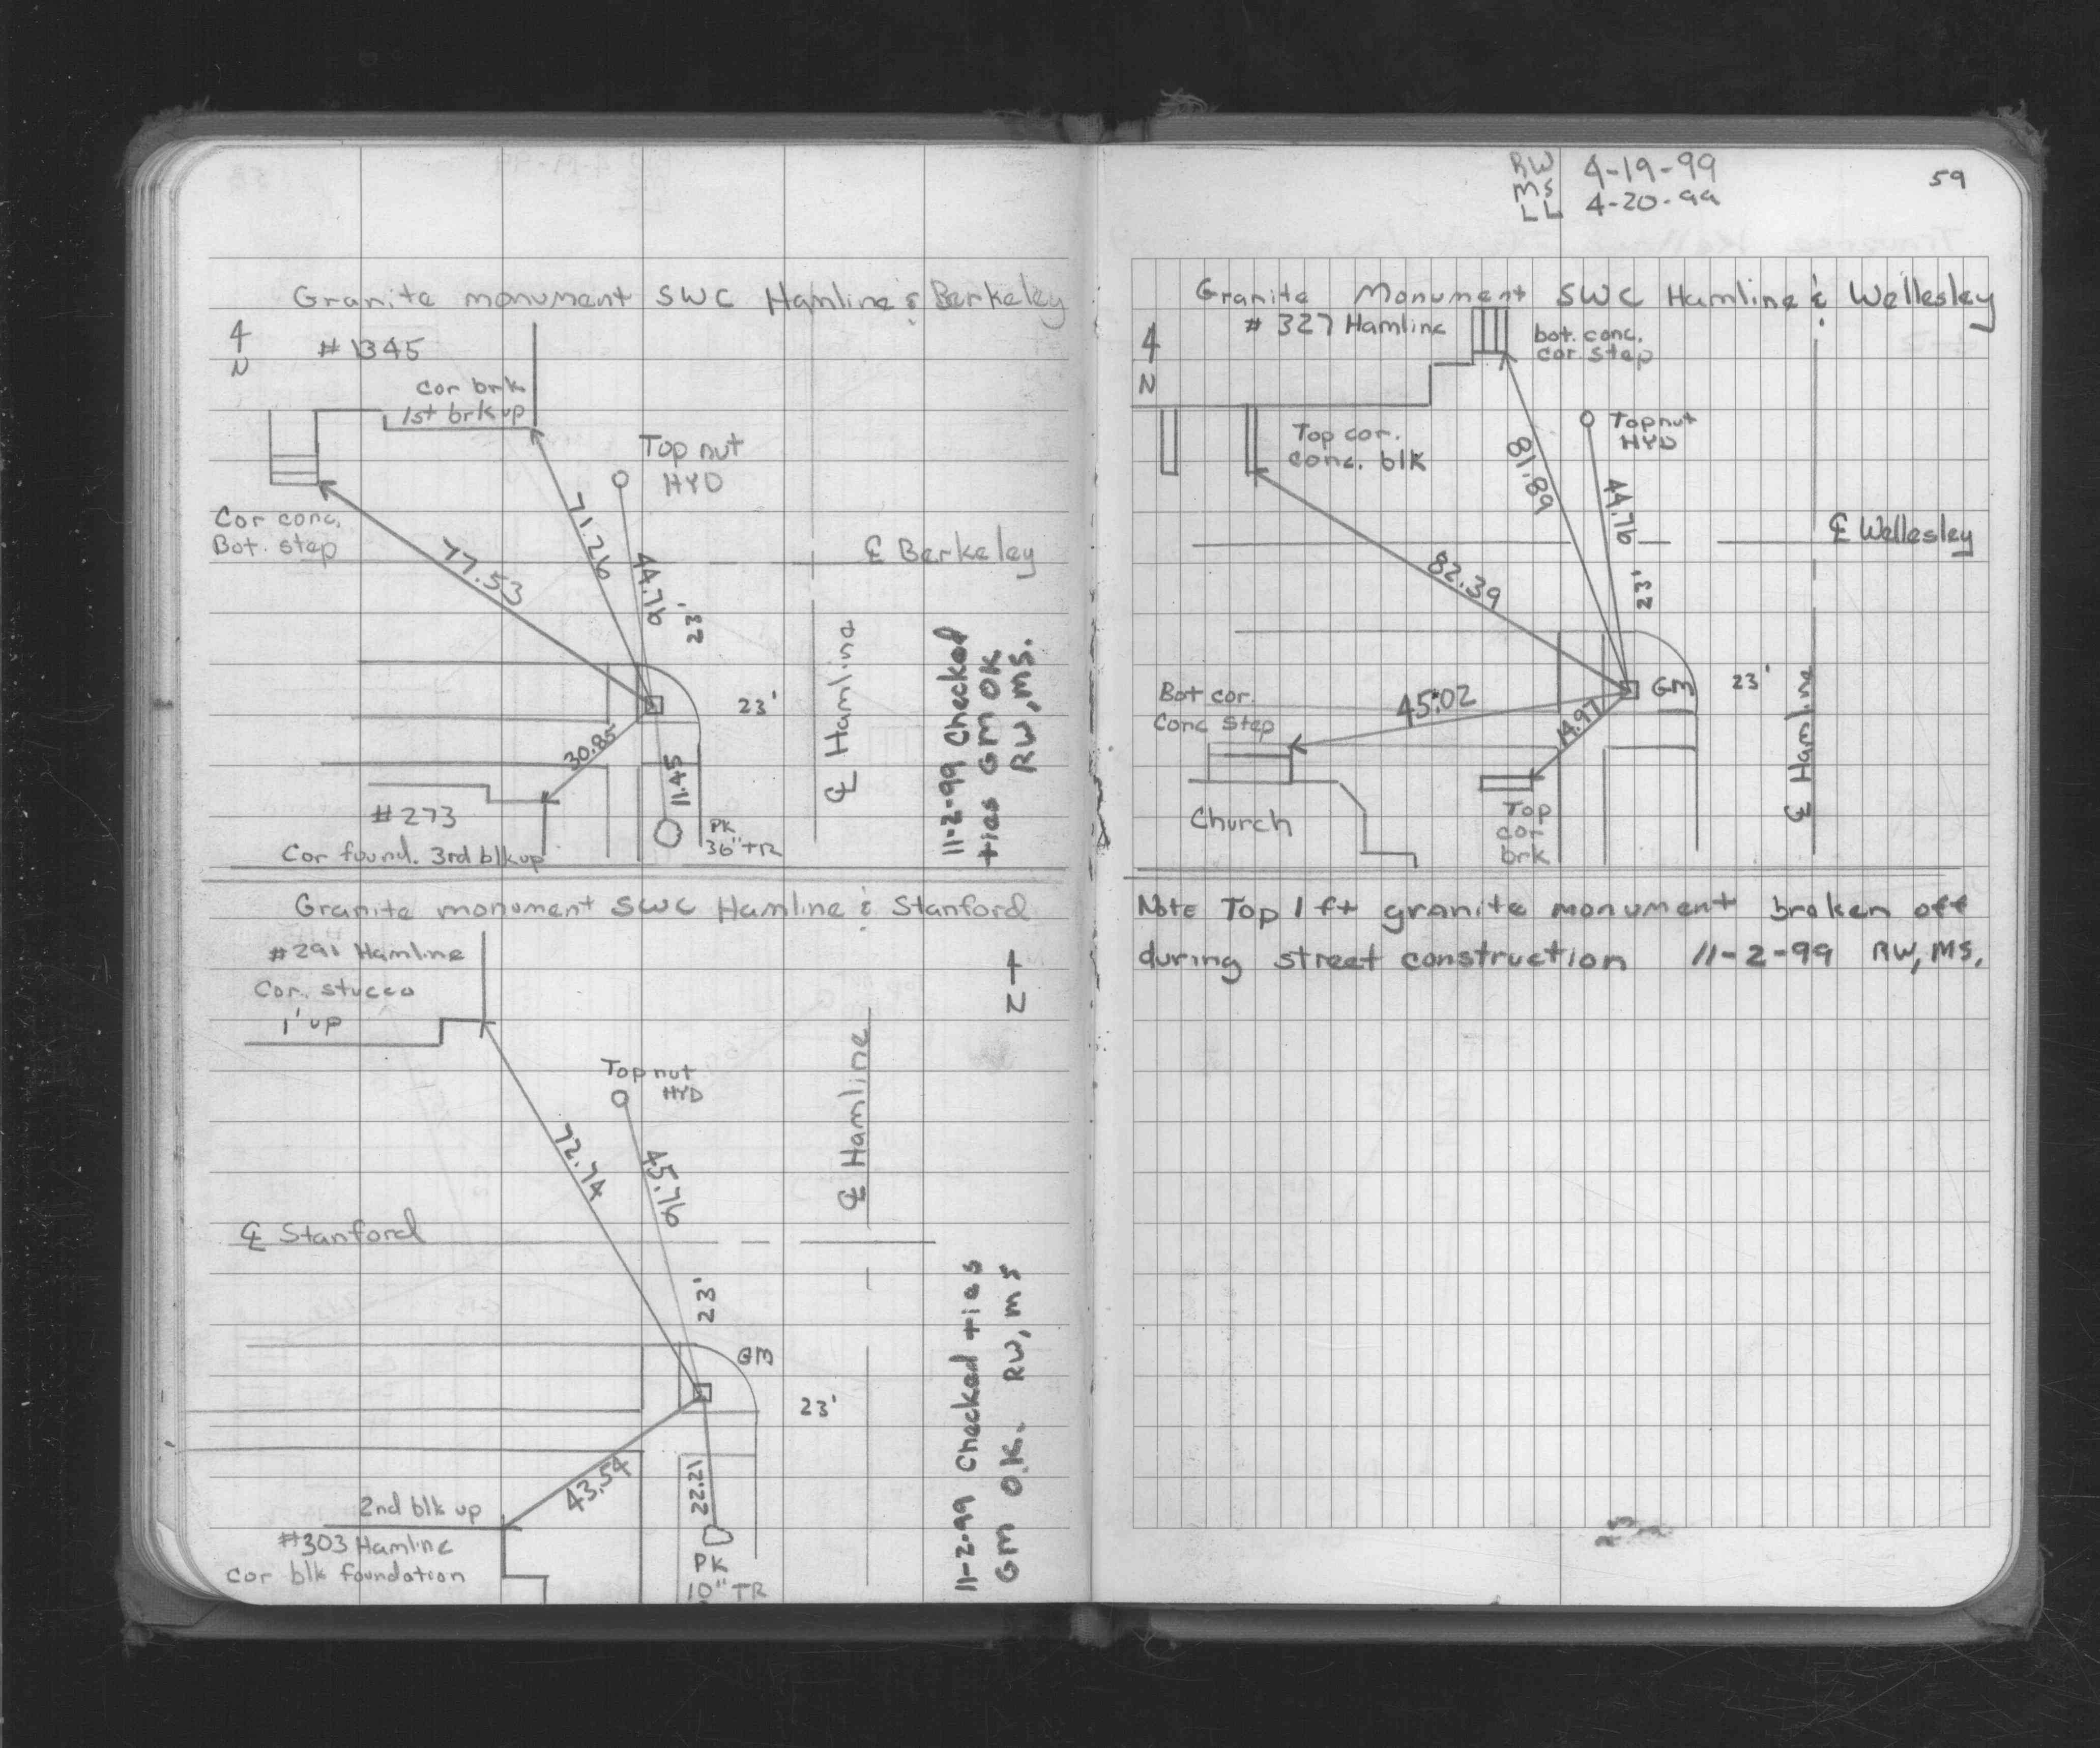 Granite monument SWC Hamline & Berkeley
4
N
# 1345
Cor brk
1st brk up
Top nut
HYD
Cor conc.
Bot. step
77.53
71.26
44.76
23'
℄ Berkeley
23'
℄ Hamline
30.85
11.45
# 273
Cor found. 3rd blk up
PK
36" TR
11-2-99 Checked
ties GM OK
RW, MS.
Granite monument SWC Hamline & Stanford
#291 Hamline
Cor. stucco
1' up
N
Top nut
HYD
72.74
45.76
℄ Hamline
℄ Stanford
23'
GM
23'
43.54
22.21
2nd blk up
#303 Hamline
cor blk foundation
PK
10" TR
11-2-99 Checked ties
GM O.K. RW, MS
RW 4-19-99
MS
LL 4-20-99
59
Granite Monument SWC Hamline & Wellesley
# 327 Hamline
4
N
bot. conc.
cor step
Top nut
HYD
Top cor.
conc. blk
81.89
44.76
℄ Wellesley
82.39
23'
GM
23'
Bot cor.
Conc step
45.02
14.97
℄ Hamline
Church
Top
cor
brk
Note Top 1 ft granite monument broken off
during street construction 11-2-99 RW, MS.